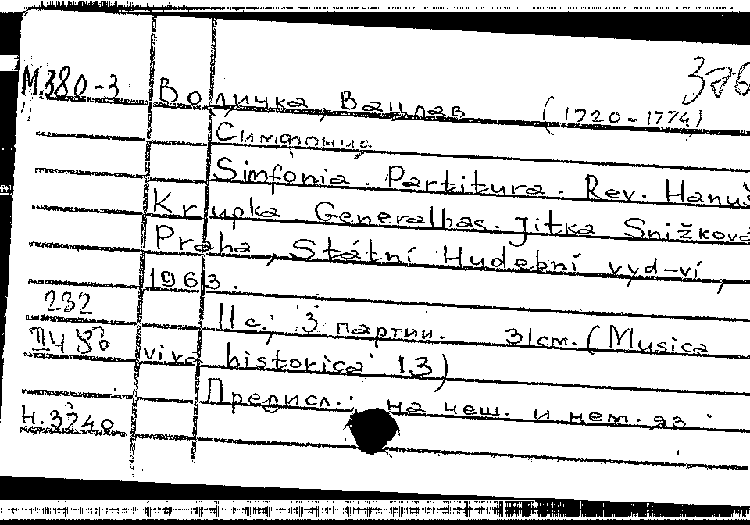 376
М.380-3 Воличка, Вацлав (1720-1774)
Симфония
Simfonia. Partitura. Rev. Hanuš
Krupka. Generalbas. Jitka Snižková
Praha, Státní Hudební vyd-ví,
1963.
232 11 с., 3 партии. 31см. (Musica
viva historica 13)
Предисл.: на чеш. и нем. яз.
Н.3740